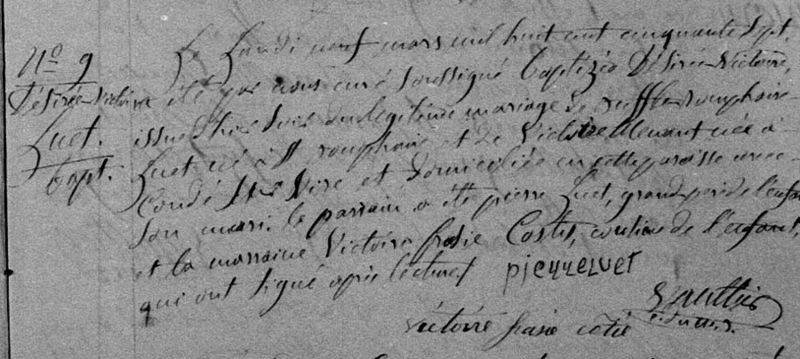 N° 9
Désirée Victoire
Luet.
bapt.
Le Lundi neuf mars mil huit cent cinquante sept,
a été par nous curé soussigné baptizée Désirée Victoire,
issue hier soir du légitime mariage de
Luet né à St et de Victoire née à
Condé Sur Vire et domiciliée en cette paroisse avec
son mari. le parrain a été pierre Luet, grand père de l'enfant
et la marraine Victoire Costé, cousine de l'enfant,
qui ont signé après lecture
pierreluet
victoire cotié